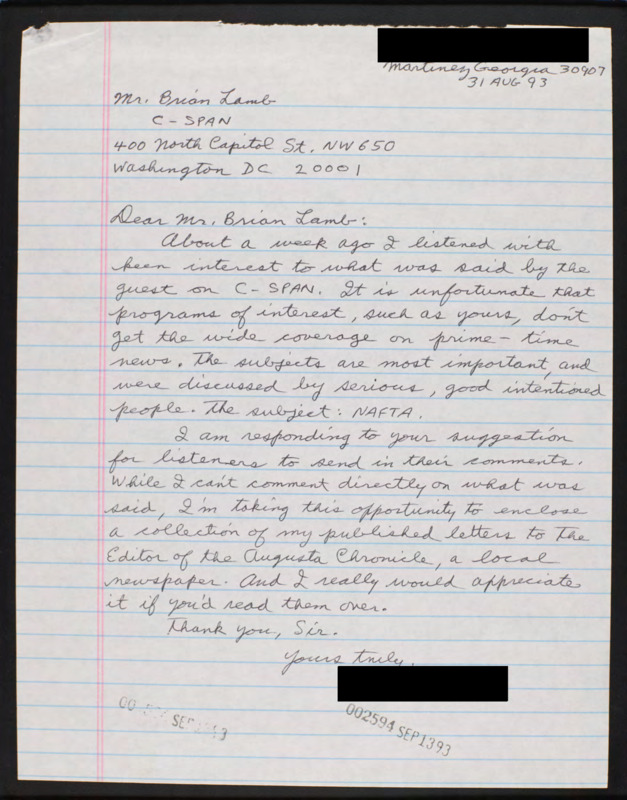 Martinez Georgia 30907
31 AUG 93
Mr. Brian Lamb
C-SPAN
400 North Capitol St. NW 650
Washington DC 20001
Dear Mr. Brian Lamb:
About a week ago I listened with
keen interest to what was said by the
guest on C-SPAN. It is unfortunate that
programs of interest, such as yours, don't
get the wide coverage on prime-time
news. The subjects are most important, and
were discussed by serious, good intentioned
people. The subject: NAFTA.
I am responding to your suggestion
for listeners to send in their comments.
While I can't comment directly on what was
said, I'm taking this opportunity to enclose
a collection of my published letters to The
Editor of the Augusta Chronicle, a local
newspaper. And I really would appreciate
it if you'd read them over.
Thank you, Sir.
Yours truly,
00 SEP 1393
002594 SEP1393